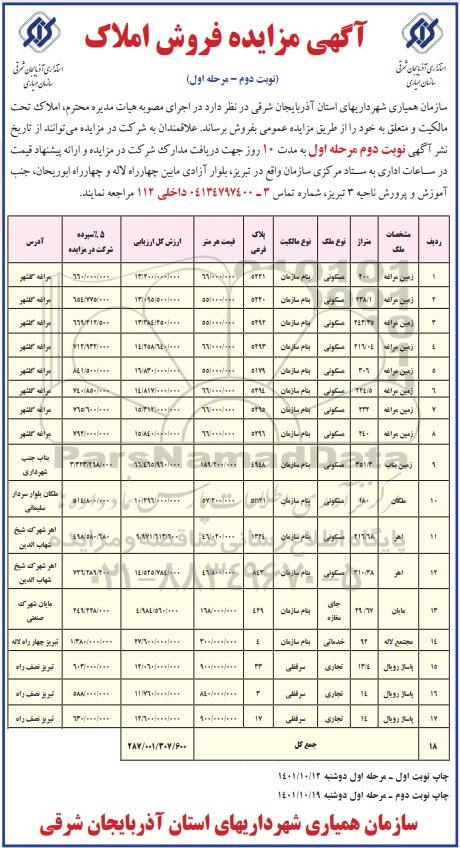 آگهی مزایده فروش املاک
(نوبت دوم - مرحله اول)
استانداری آذربایجان شرقی
سازمان همیاری
استانداری آذربایجان شرقی
سازمان همیاری
سازمان همیاری شهرداریهای استان آذربایجان شرقی در نظر دارد در اجرای مصوبه هیات مدیره محترم، املاک تحت
مالکیت و متعلق به خود را از طریق مزایده عمومی بفروش برساند. علاقمندان به شرکت در مزایده می‌توانند از تاریخ
نشر آگهی نوبت دوم مرحله اول به مدت ۱۰ روز جهت دریافت مدارک شرکت در مزایده و ارائه پیشنهاد قیمت
در ساعات اداری به ستاد مرکزی سازمان واقع در تبریز، بلوار آزادی مابین چهارراه لاله و چهارراه ابوریحان، جنب
آموزش و پرورش ناحیه ۳ تبریز، شماره تماس ۳ - ۰۴۱۳۴۷۹۷۴۰۰ داخلی ۱۱۲ مراجعه نمایند.
ردیف مشخصات ملک متراژ نوع ملک نوع مالکیت پلاک فرعی قیمت هر متر ارزش کل ارزیابی ۵٪ سپرده شرکت در مزایده آدرس
۱ زمین مراغه ۲۰۰ مسکونی بنام سازمان ۵۲۲۱ ۶۶/۰۰۰/۰۰۰ ۱۳/۲۰۰/۰۰۰/۰۰۰ ۶۶۰/۰۰۰/۰۰۰ مراغه گلشهر
۲ زمین مراغه ۲۳۸/۱ مسکونی بنام سازمان ۵۲۲۰ ۵۵/۰۰۰/۰۰۰ ۱۳/۰۹۵/۵۰۰/۰۰۰ ۶۵۴/۷۷۵/۰۰۰ مراغه گلشهر
۳ زمین مراغه ۲۴۳/۳۵ مسکونی بنام سازمان ۵۲۹۲ ۵۵/۰۰۰/۰۰۰ ۱۳/۳۸۴/۲۵۰/۰۰۰ ۶۶۹/۲۱۲/۵۰۰ مراغه گلشهر
۴ زمین مراغه ۲۱۶/۰۴ مسکونی بنام سازمان ۵۲۹۳ ۶۶/۰۰۰/۰۰۰ ۱۴/۲۵۸/۶۴۰/۰۰۰ ۷۱۲/۹۳۲/۰۰۰ مراغه گلشهر
۵ زمین مراغه ۳۰۶ مسکونی بنام سازمان ۵۱۷۹ ۵۵/۰۰۰/۰۰۰ ۱۶/۸۳۰/۰۰۰/۰۰۰ ۸۴۱/۵۰۰/۰۰۰ مراغه گلشهر
۶ زمین مراغه ۲۲۴/۵ مسکونی بنام سازمان ۵۲۹۴ ۶۶/۰۰۰/۰۰۰ ۱۴/۸۱۷/۰۰۰/۰۰۰ ۷۴۰/۸۵۰/۰۰۰ مراغه گلشهر
۷ زمین مراغه ۲۳۲ مسکونی بنام سازمان ۵۲۹۵ ۶۶/۰۰۰/۰۰۰ ۱۵/۳۱۲/۰۰۰/۰۰۰ ۷۶۵/۶۰۰/۰۰۰ مراغه گلشهر
۸ زمین مراغه ۲۴۰ مسکونی بنام سازمان ۵۲۹۶ ۶۶/۰۰۰/۰۰۰ ۱۵/۸۴۰/۰۰۰/۰۰۰ ۷۹۲/۰۰۰/۰۰۰ مراغه گلشهر
۹ زمین بناب ۳۵۱/۳ مسکونی بنام سازمان ۴۹۴۸ ۱۸۹/۲۰۰/۰۰۰ ۶۶/۴۶۵/۹۶۰/۰۰۰ ۳/۳۲۳/۲۹۸/۰۰۰ بناب جنب شهرداری
۱۰ ملکان ۱۸۰ مسکونی بنام سازمان ۵۷/۲۰۰/۰۰۰ ۱۰/۲۹۶/۰۰۰/۰۰۰ ۵۱۴/۸۰۰/۰۰۰ ملکان بلوار سردار سلیمانی
۱۱ اهر ۲۱۶/۶۸ مسکونی بنام سازمان ۱۳۲۴ ۴۶/۰۲۰/۰۰۰ ۹/۹۷۱/۶۱۳/۶۰۰ ۴۹۸/۵۸۰/۶۸۰ اهر شهرک شیخ شهاب الدین
۱۲ اهر ۳۱۰/۳۸ مسکونی بنام سازمان ۸۴۳ ۴۶/۸۰۰/۰۰۰ ۱۴/۵۲۵/۷۸۴/۰۰۰ ۷۲۶/۲۸۹/۲۰۰ اهر شهرک شیخ شهاب الدین
۱۳ مایان ۲۹/۶۷ جای مغازه بنام سازمان ۴۲۹ ۱۶۸/۰۰۰/۰۰۰ ۴/۹۸۴/۵۶۰/۰۰۰ ۲۴۹/۲۲۸/۰۰۰ مایان شهرک صنعتی
۱۴ مجتمع لاله ۹۲ خدماتی بنام سازمان ۴ ۳۰۰/۰۰۰/۰۰۰ ۲۷/۶۰۰/۰۰۰/۰۰۰ ۱/۳۸۰/۰۰۰/۰۰۰ تبریز چهار راه لاله
۱۵ پاساژ رویال ۱۳/۴ تجاری سرقفلی ۳۳ ۹۰۰/۰۰۰/۰۰۰ ۱۲/۰۶۰/۰۰۰/۰۰۰ ۶۰۳/۰۰۰/۰۰۰ تبریز نصف راه
۱۶ پاساژ رویال ۱۴ تجاری سرقفلی ۳ ۸۴۰/۰۰۰/۰۰۰ ۱۱/۷۶۰/۰۰۰/۰۰۰ ۵۸۸/۰۰۰/۰۰۰ تبریز نصف راه
۱۷ پاساژ رویال ۱۴ تجاری سرقفلی ۱۷ ۹۰۰/۰۰۰/۰۰۰ ۱۲/۶۰۰/۰۰۰/۰۰۰ ۶۳۰/۰۰۰/۰۰۰ تبریز نصف راه
۱۸ جمع کل ۲۸۷/۰۰۱/۳۰۷/۶۰۰
ParsNamadData
پایگاه اطلاع رسانی مناقصه و مزایده
۰۲۱-۸۸۳۴۹۶۷۰-۵
چاپ نوبت اول - مرحله اول دوشنبه ۱۴۰۱/۱۰/۱۲
چاپ نوبت دوم - مرحله اول دوشنبه ۱۴۰۱/۱۰/۱۹
سازمان همیاری شهرداریهای استان آذربایجان شرقی